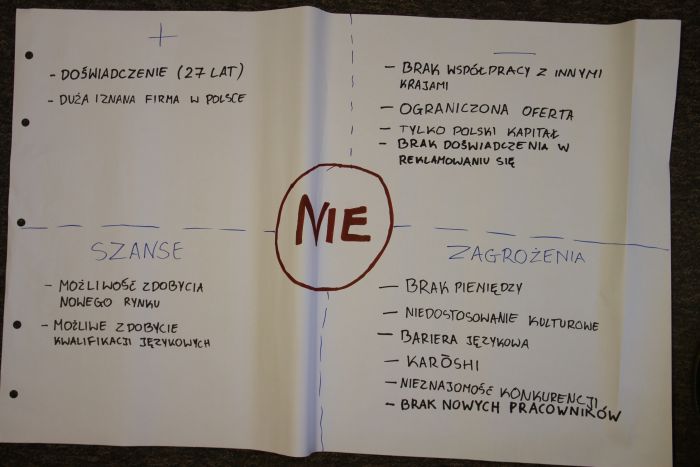 +
- DOŚWIADCZENIE (27 LAT)
- DUŻA I ZNANA FIRMA W POLSCE
—
- BRAK WSPÓŁPRACY Z INNYMI
KRAJAMI
- OGRANICZONA OFERTA
- TYLKO POLSKI KAPITAŁ
- BRAK DOŚWIADCZENIA W
REKLAMOWANIU SIĘ
NIE
SZANSE
- MOŻLIWOŚĆ ZDOBYCIA
NOWEGO RYNKU
- MOŻLIWE ZDOBYCIE
KWALIFIKACJI JĘZYKOWYCH
ZAGROŻENIA
- BRAK PIENIĘDZY
- NIEDOSTOSOWANIE KULTUROWE
- BARIERA JĘZYKOWA
- KARŌSHI
- NIEZNAJOMOŚĆ KONKURENCJI
- BRAK NOWYCH PRACOWNIKÓW